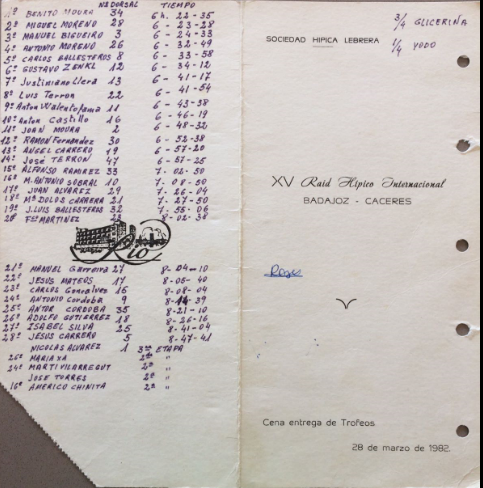 Nº DORSAL TIEMPO
1º BENITO MOURA 34 6h. 22-35
2º MIGUEL MORENO 28 6 - 23-28
3º MANUEL BIGUEIRO 3 6 - 24-33
4º ANTONIO MORENO 26 6 - 32-49
5º CARLOS BALLESTEROS 8 6 - 33-58
6º GUSTAVO ZENKL 12 6 - 34-12
7º Justiniano Llera 13 6 - 41-17
8º LUIS Terron 22 6 - 41-54
9º Anton Walentofama 11 6 - 43-38
10º Anton Castillo 16 6 - 46-19
11º JOAN MOURA 2 6 - 48-32
12º RAMON Fernandez 30 6 - 52-38
13º ANGEL CARRERO 19 6 - 57-20
14º José TERRON 47 6 - 57-25
15º ALFONSO RAMIREZ 33 7 - 02-50
16º M. ANTONIO SOBRAL 10 7 - 08-50
17º JUAN ALVAREZ 29 7 - 26-04
18º Mª DOLOS CARRERA 21 7 - 27-50
19º J. LUIS BALLESTEROS 32 7 - 55-06
20º Fco MARTINEZ 23 8 - 02-38
Rio
21º MANUEL Garreira 27 8-04-10
22º JESUS MATEOS 17 8-05-40
23º CARLOS Gonçalves 16 8-08-04
24º ANTONIO Cordoba 9 8-14-39
25º ANTOR CORDOBA 35 8-21-10
26º ADOLFO GUTIERREZ 18 8-26-16
27º ISABEL SILVA 25 8-41-04
28º JESUS CARRERO 5 8-47-41
NICOLAS ALVAREZ 1 3ª ETAPA
26º MARIANA 2ª "
24º MARTI VILARREGUT 2ª "
JOSE TORRES 2ª "
16º AMERICO CHINITA 2ª "
3/4 GLICERINA
1/4 YODO
SOCIEDAD HIPICA LEBRERA
XV Raid Hípico Internacional
BADAJOZ - CACERES
Cena entrega de Trofeos
28 de marzo de 1982.